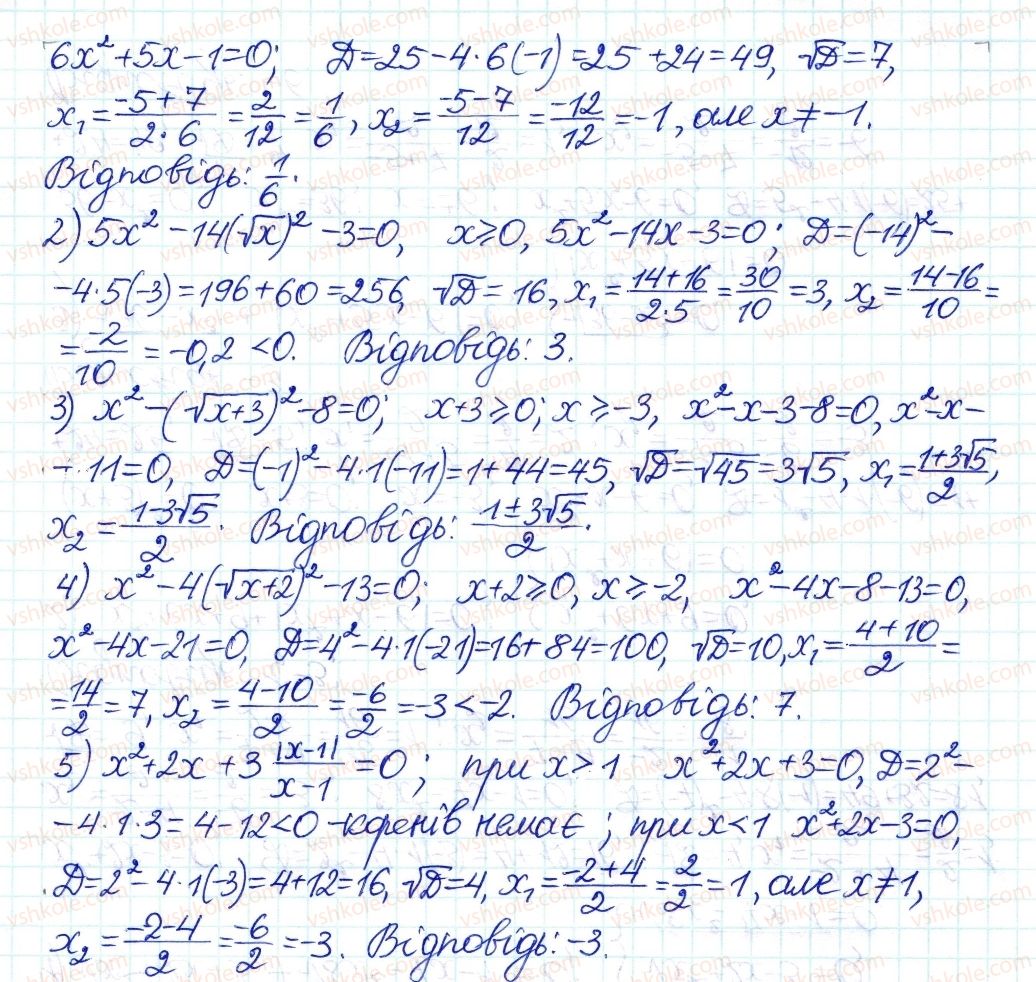 6x²+5x-1=0; D=25-4·6(-1)=25+24=49, √D=7,
x₁=(-5+7)/(2·6)=2/12=1/6, x₂=(-5-7)/12=-12/12=-1, але x≠-1.
Відповідь: 1/6.
2) 5x²-14(√x)²-3=0, x≥0, 5x²-14x-3=0; D=(-14)²-
-4·5(-3)=196+60=256, √D=16, x₁=(14+16)/(2·5)=30/10=3, x₂=(14-16)/10=
=-2/10=-0,2<0. Відповідь: 3.
3) x²-(√(x+3))²-8=0; x+3≥0; x≥-3, x²-x-3-8=0, x²-x-
-11=0, D=(-1)²-4·1(-11)=1+44=45, √D=√45=3√5, x₁=(1+3√5)/2,
x₂=(1-3√5)/2. Відповідь: (1±3√5)/2.
4) x²-4(√(x+2))²-13=0; x+2≥0, x≥-2, x²-4x-8-13=0,
x²-4x-21=0, D=4²-4·1(-21)=16+84=100, √D=10, x₁=(4+10)/2=
=14/2=7, x₂=(4-10)/2=-6/2=-3<-2. Відповідь: 7.
5) x²+2x+3|x-1|/(x-1)=0; при x>1 x²+2x+3=0, D=2²-
-4·1·3=4-12<0-коренів немає; при x<1 x²+2x-3=0,
D=2²-4·1(-3)=4+12=16, √D=4, x₁=(-2+4)/2=2/2=1, але x≠1,
x₂=(-2-4)/2=-6/2=-3. Відповідь: -3.
vshkole.com